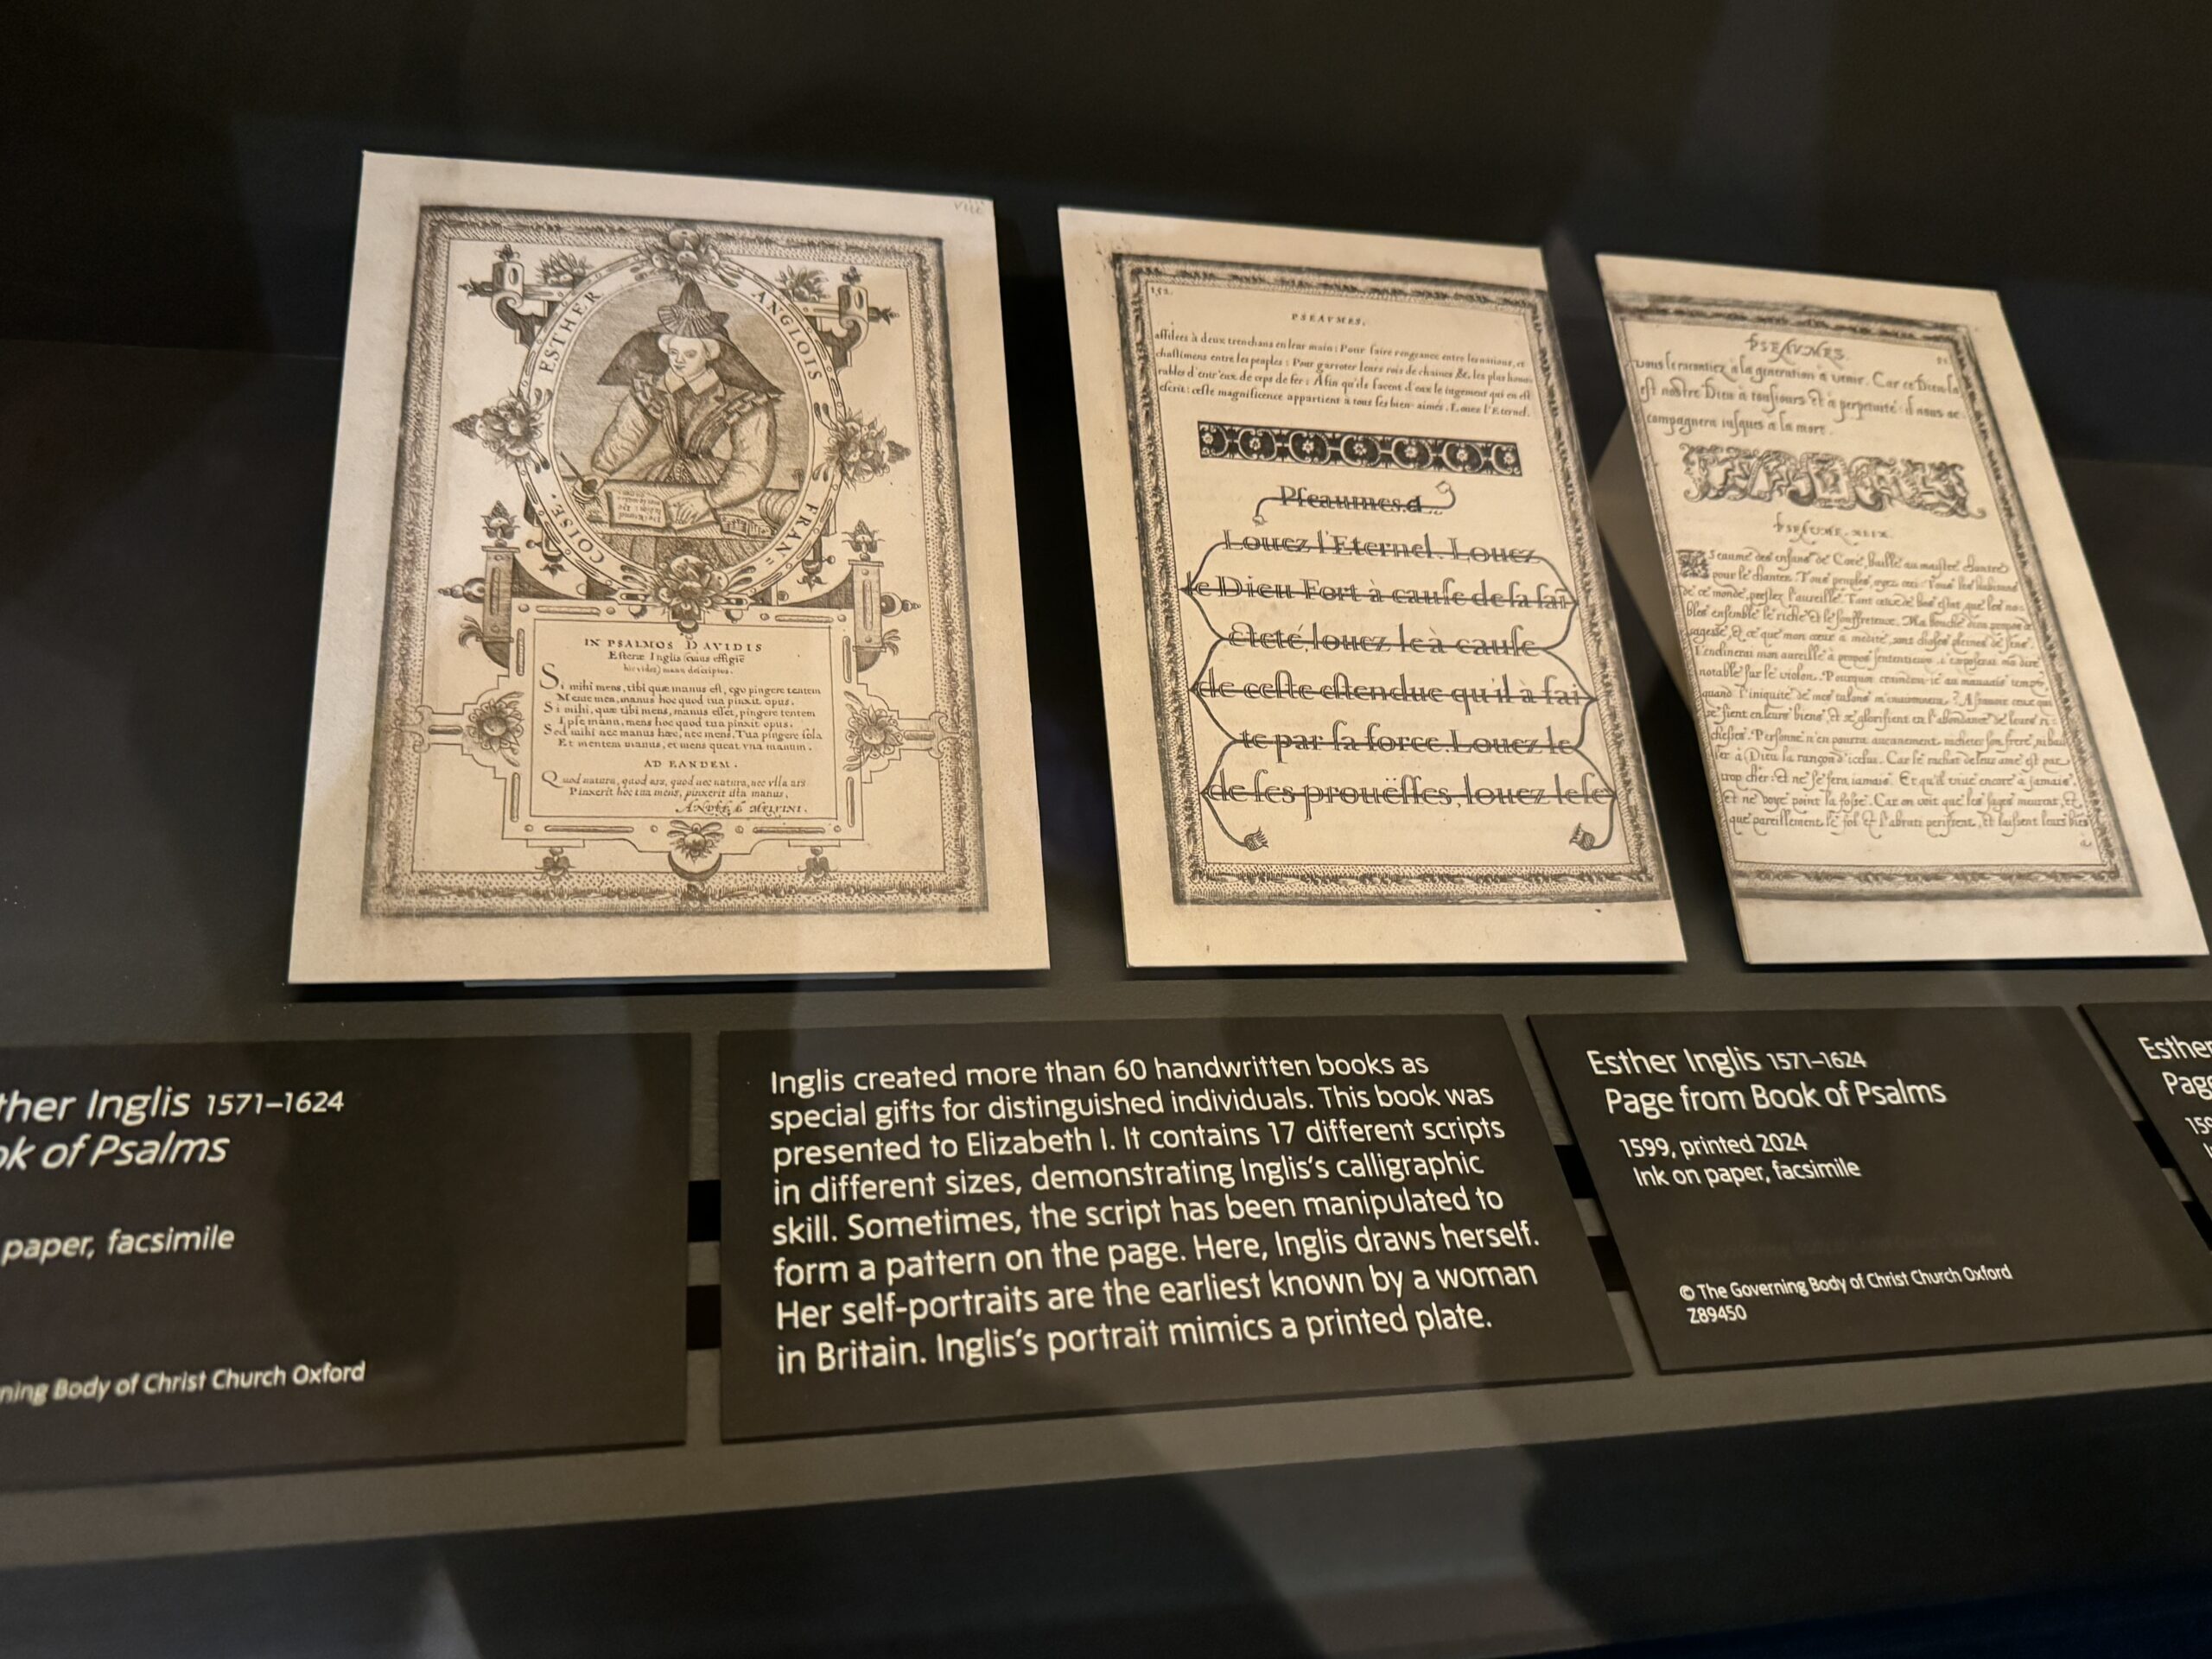 viii
ESTHER ANGLOIS FRAN=
COISE.
IN PSALMOS DAVIDIS
Esteræ Inglis
Si mihi mens, tibi quæ manus est, ego pingere tentem
Mente mea, manus hoc quod tua pinxit opus.
Si mihi, quæ tibi mens, manus esset, pingere tentem
Ipse manu, mens hoc quod tua pinxit opus.
Sed mihi nec manus hæc, nec mens. Tua pingere sola
Et mentem manus, et mens queat vna manum.
AD EANDEM.
Quod natura, quod ars, quod nec natura, nec vlla ars
Pinxerit hoc tua mens, pinxerit ista manus.
152.
PSEAVMES.
affilees à deux trenchans en leur main: Pour faire vengeance entre les nations, et
chastimens entre les peuples: Pour garroter leurs rois de chaines &, les plus hono-
rables d'entr'eux de ceps de fer: Afin qu'ils facent d'eux le iugement qui en est
escrit: ceste magnificence appartient à tous ses bien-aimés. Louez l'Eternel.
Pseaumes.
Louez l'Eternel. Louez
le Dieu Fort à cause de sa sai
cteté, louez le à cause
de ceste estendue qu'il à fai
te par sa force. Louez le
de ses prouësses, louez le se
PSEAUMES.
vous le racontiez à la generation à venir. Car ce Dieu la
est nostre Dieu à tousjours et à perpetuité: il nous ac-
compagnera iusques a la mort.
PSEAUME. XLIX.
Pseaume des enfans de Coré, baillé au maistre chantre
pour le chanter. Tous peuples, oyez ceci: Tous les habitans
de ce monde, prestez l'aureille. Tant ceux de bas estat, que les no-
bles ensemble le riche et le souffreteux. Ma bouche
sagesse, et ce que mon cœur a medité, sont choses pleines de sens.
notable sur le violon. Pourquoi
quand l'iniquité de mes talons
se fient en leurs biens, et se glorifient en l'abondance de leurs ri-
chesses. Personne n'en pourra aucunement racheter son frere, ni bail-
ler à Dieu la rançon d'icelui. Car le rachat de leur ame est par
trop cher: Et ne se fera iamais. Et qu'il viue encore a jamais,
et ne voye point la fosse. Car on voit que les sages meurent, et
que pareillement le fol et l'abruti perissent, et laissent leurs biens
ther Inglis 1571–1624
ok of Psalms
paper, facsimile
ning Body of Christ Church Oxford
Inglis created more than 60 handwritten books as
special gifts for distinguished individuals. This book was
presented to Elizabeth I. It contains 17 different scripts
in different sizes, demonstrating Inglis's calligraphic
skill. Sometimes, the script has been manipulated to
form a pattern on the page. Here, Inglis draws herself.
Her self-portraits are the earliest known by a woman
in Britain. Inglis's portrait mimics a printed plate.
Esther Inglis 1571–1624
Page from Book of Psalms
1599, printed 2024
Ink on paper, facsimile
© The Governing Body of Christ Church Oxford
Z89450
Esther
Pag